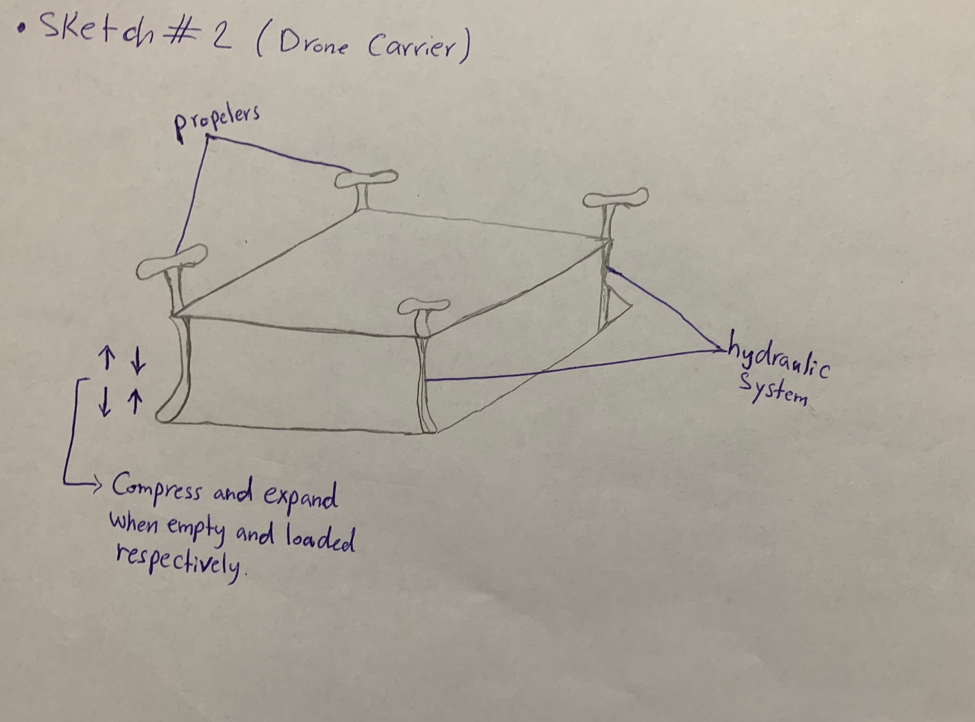 • Sketch # 2 (Drone Carrier)
propelers
hydraulic
System
↑ ↓
↓ ↑
Compress and expand
when empty and loaded
respectively.